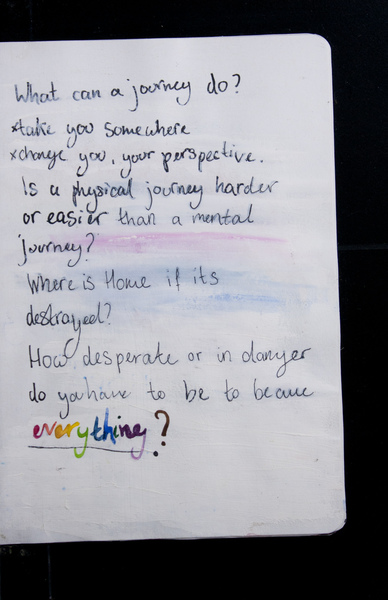 What can a journey do?
*take you somewhere
*change you, your perspective.
Is a physical journey harder
or easier than a mental
journey?
Where is Home if its
destrayed?
How desperate or in danger
do you have to be to
everything?